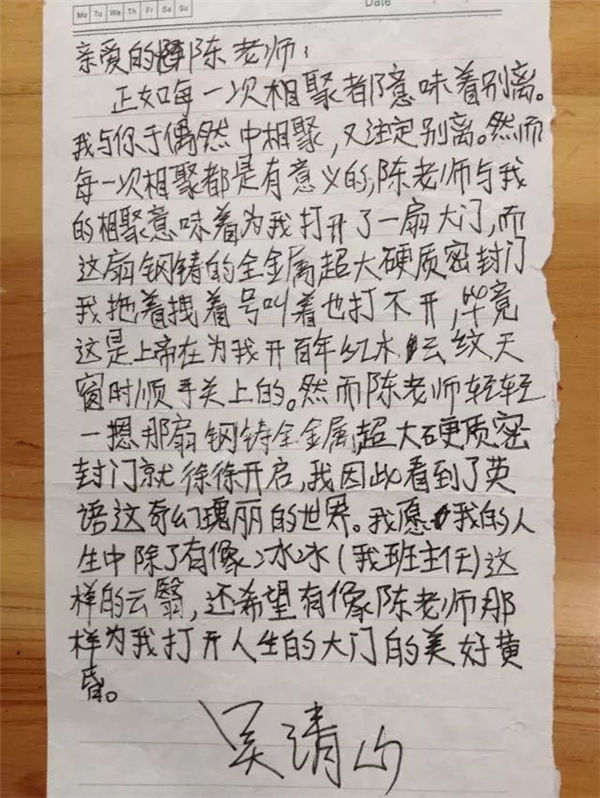 Mo Tu We Th Fr Sa Su
Date
亲爱的陈老师:
正如每一次相聚都意味着别离。
我与你于偶然中相聚,又注定别离。然而
每一次相聚都是有意义的,陈老师与我
的相聚意味着为我打开了一扇大门,而
这扇钢铸的全金属超大硬质密封门
我拖着拽着号叫着也打不开,毕竟
这是上帝在为我开百年红木云纹天
窗时顺手关上的。然而陈老师轻轻
一摁那扇钢铸全金属超大硬质密
封门就徐徐开启,我因此看到了英
语这奇幻瑰丽的世界。我愿我的人
生中除了有像冰冰(我班主任)这
样的云翳,还希望有像陈老师那
样为我打开人生的大门的美好黄
昏。
吴清山